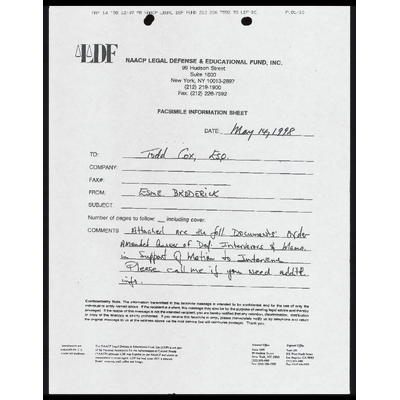 MAY 14 '98 12:47 PM NAACP LEGAL DEF FUND 212 226 7592 TO LDF DC P.01/10
LDF
NAACP LEGAL DEFENSE & EDUCATIONAL FUND, INC.
99 Hudson Street
Suite 1600
New York, NY 10013-2897
(212) 219-1900
Fax: (212) 226-7592
FACSIMILE INFORMATION SHEET
DATE: May 14, 1998
TO: Todd Cox, Esq.
COMPANY:
FAX#:
FROM: Esme Broderick
SUBJECT:
Number of pages to follow: including cover.
COMMENTS: Attached are the foll Documents: Order
Amended Answer of Def. Intervenors & Memo.
in Support of Motion to Intervene
Please call me if you need addtl
info.
Confidentiality Note: The information transmitted in this facsimile message is intended to be confidential and for the use of only the
individual or entity named above. If the recipient is a client, this message may also be for the purpose of rendering legal advice and thereby
privileged. If the reader of this message is not the intended recipient, you are hereby notified that any retention, dissemination, distribution
or copy of this telecopy is strictly prohibited. If you receive this facsimile in error, please immediately notify us by telephone and return
the original message to us at the address above via the mail service (we will reimburse postage). Thank you.